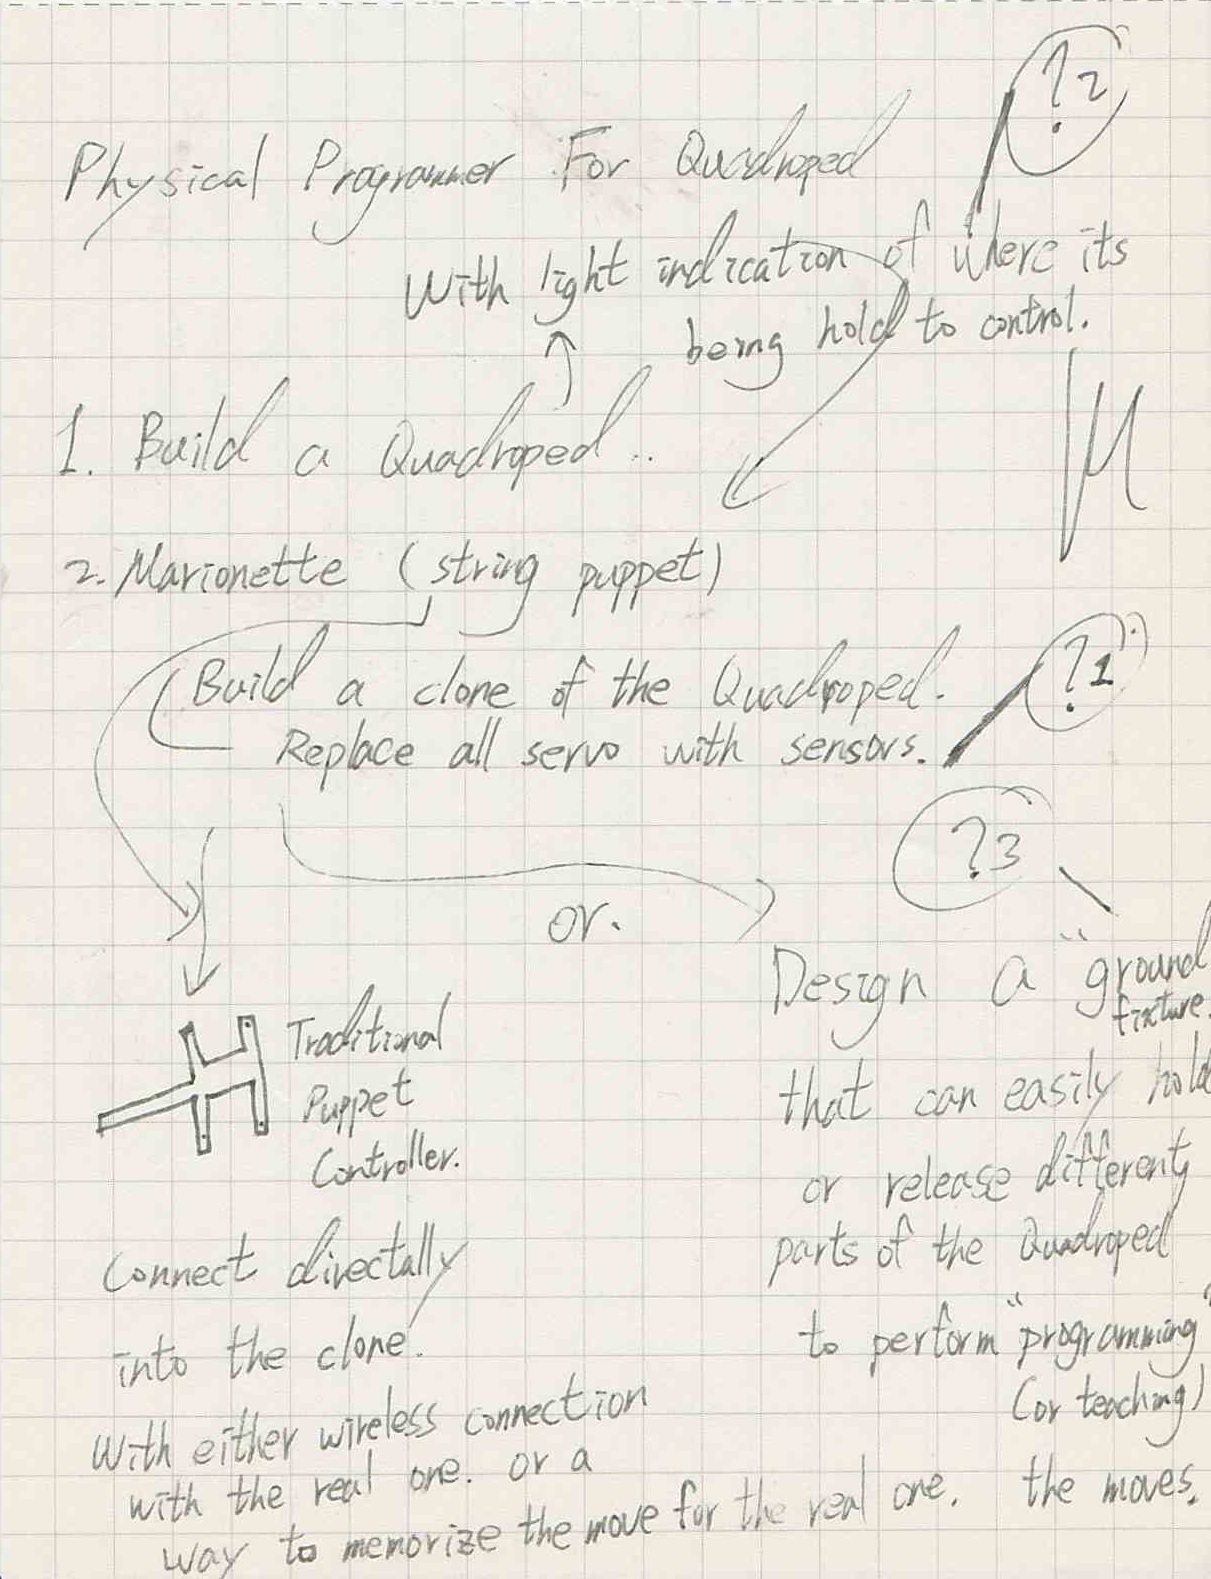 ?2
Physical Programmer For Quadroped
With light indication of where its
being hold to control.
1. Build a Quadroped..
2. Marionette (string puppet)
Build a clone of the Quadroped.
Replace all servo with sensors.
?1
?3
or.
Design a "ground
fixture.
that can easily hold
or release different
parts of the Quadroped
to perform "programming"
(or teaching)
the moves.
Traditional
Puppet
Controller.
Connect directally
into the clone.
With either wireless connection
with the real one. or a
way to memorize the move for the real one.